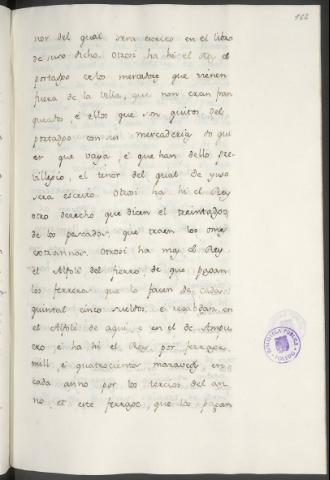 162
nor del qual sera escrito en el libro
de suso dicho. Otrosi ha hi el Rey el
portadgo de los mercadores que vienen
fuera de la villa, que non eran fran
queados, é ellos que son quitos del
portadgo con su mercaderia do qui
er que vaya, é que han dello pre
billegio, el tenor del qual de yuso
sera escrito. Otrosi ha hi el Rey
otro derecho que dicen el treintadgo
de los pescados, que traen los ome
Otrosi ha mas el Rey
el Alfoli del fierro de que pagan
los ferreros que lo facen de cada
quintal cinco sueldos, é recabdan en
el Alfoli de aqui, é en el de Ampu
ero é ha hi el Rey por ferrage
mill é quatrocientos maravedis en
cada anno por los tercios del an
no, et este ferrage, que los pagan